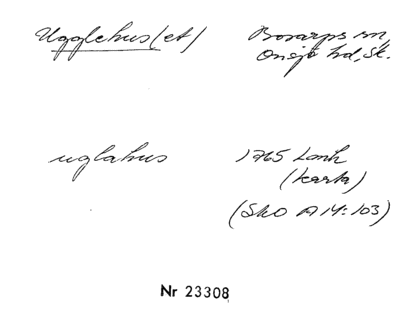 Ugglehus(et) Bosarps sn,
Onsjö hd, Sk.
uglahus 1765 Lmh
(karta)
(Sko A 14:103)
Nr 23308